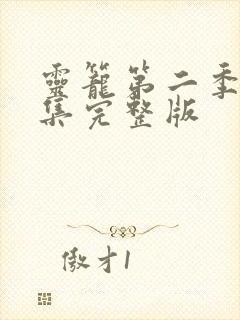 靈籠第二季
集完整版
傲才1